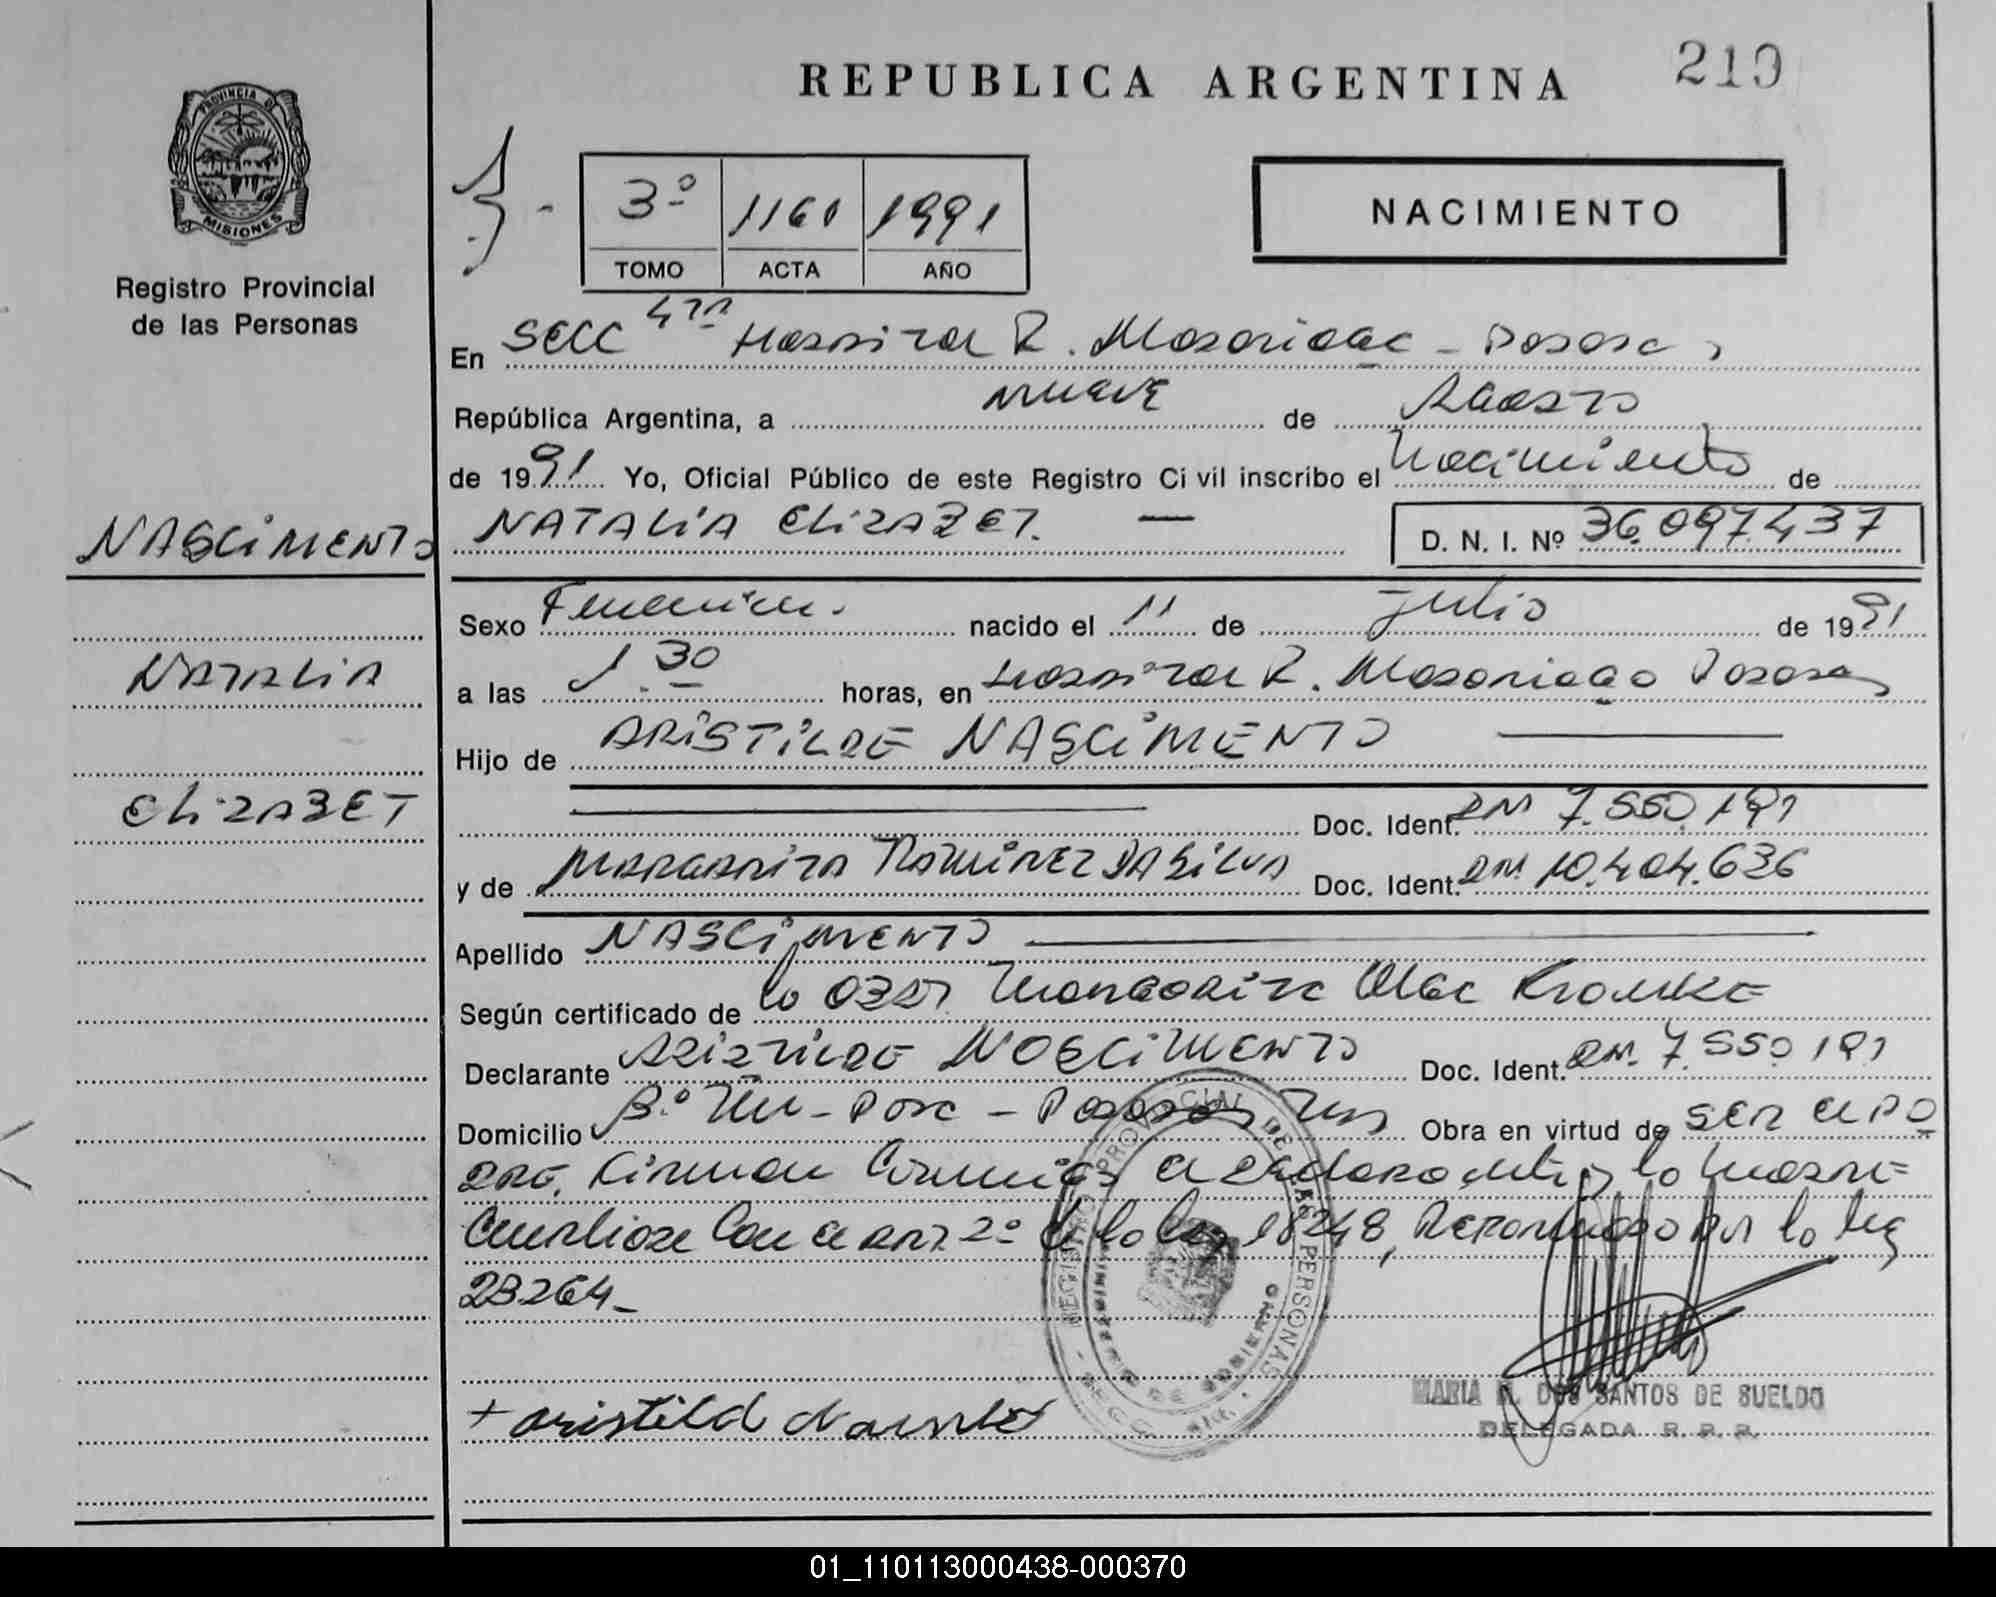 210
REPUBLICA ARGENTINA
PROVINCIA DE
MISIONES
Registro Provincial
de las Personas
3º 1161 1991
TOMO ACTA AÑO
NACIMIENTO
En SECC 4ta Hospital R. Madariaga - Posadas
República Argentina, a nueve de Agosto
de 1991 Yo, Oficial Público de este Registro Ci vil inscribo el Nacimiento de
NASCiMENTO
NATALiA ELiZABET. — D. N. I. Nº 36.097.437
Sexo Femenino. nacido el 11 de julio de 1991
NATALiA
a las 1.30 horas, en Hospital R. Madariaga Posadas
Hijo de ARiSTiLDE NASCiMENTO
ELiZABET
Doc. Ident. DNI 7.550.191
y de MARGARiTA RAMiREZ DA SiLVA Doc. Ident. DNI 10.404.636
Apellido NASCiMENTO
Según certificado de la Obst. Margarita Olga
Declarante ARiSTiLDE NASCiMENTO Doc. Ident. DNI. 7.550.191
Domicilio Bº - Posadas Obra en virtud de SER EL PA
DRE. Firman el declarante y la
Cumpliose con el art 2º de la ley 18248, por la ley
23264-
REGISTRO PROVINCIAL DE LAS PERSONAS
MINISTERIO DE GOBIERNO
MARIA DOS SANTOS DE SUELDO
DELEGADA R. P. P.
+ aristild
01_110113000438-000370